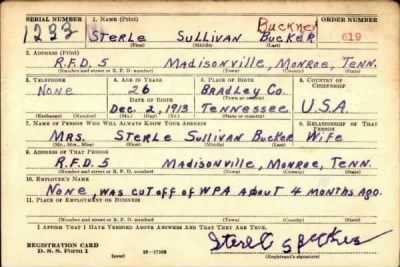 SERIAL NUMBER 1. NAME (Print) Buckner ORDER NUMBER
1233 STERLE SULLIVAN BUCKER 619
(First) (Middle) (Last)
2. ADDRESS (Print)
R.F.D. 5 MADISONVILLE, MONROE, TENN.
(Number and street or R. F. D. number) (Town) (County) (State)
3. TELEPHONE 4. AGE IN YEARS 5. PLACE OF BIRTH 6. COUNTRY OF CITIZENSHIP
NONE 26 BRADLEY CO.
DATE OF BIRTH
DEC. 2, 1913 TENNESSEE U.S.A.
(Mo.) (Day) (Yr.) (State or country)
7. NAME OF PERSON WHO WILL ALWAYS KNOW YOUR ADDRESS 8. RELATIONSHIP OF THAT PERSON
MRS. STERLE SULLIVAN BUCKER WIFE
(Mr., Mrs., Miss) (First) (Middle) (Last)
9. ADDRESS OF THAT PERSON
R.F.D. 5 MADISONVILLE, MONROE, TENN.
(Number and street or R. F. D. number) (Town) (County) (State)
10. EMPLOYER'S NAME
NONE, WAS CUT OFF OF WPA ABOUT 4 MONTHS AGO.
11. PLACE OF EMPLOYMENT OR BUSINESS
(Number and street or R. F. D. number) (Town) (County) (State)
I AFFIRM THAT I HAVE VERIFIED ABOVE ANSWERS AND THAT THEY ARE TRUE.
REGISTRATION CARD
D. S. S. Form 1 16-17105
(Registrant's signature)